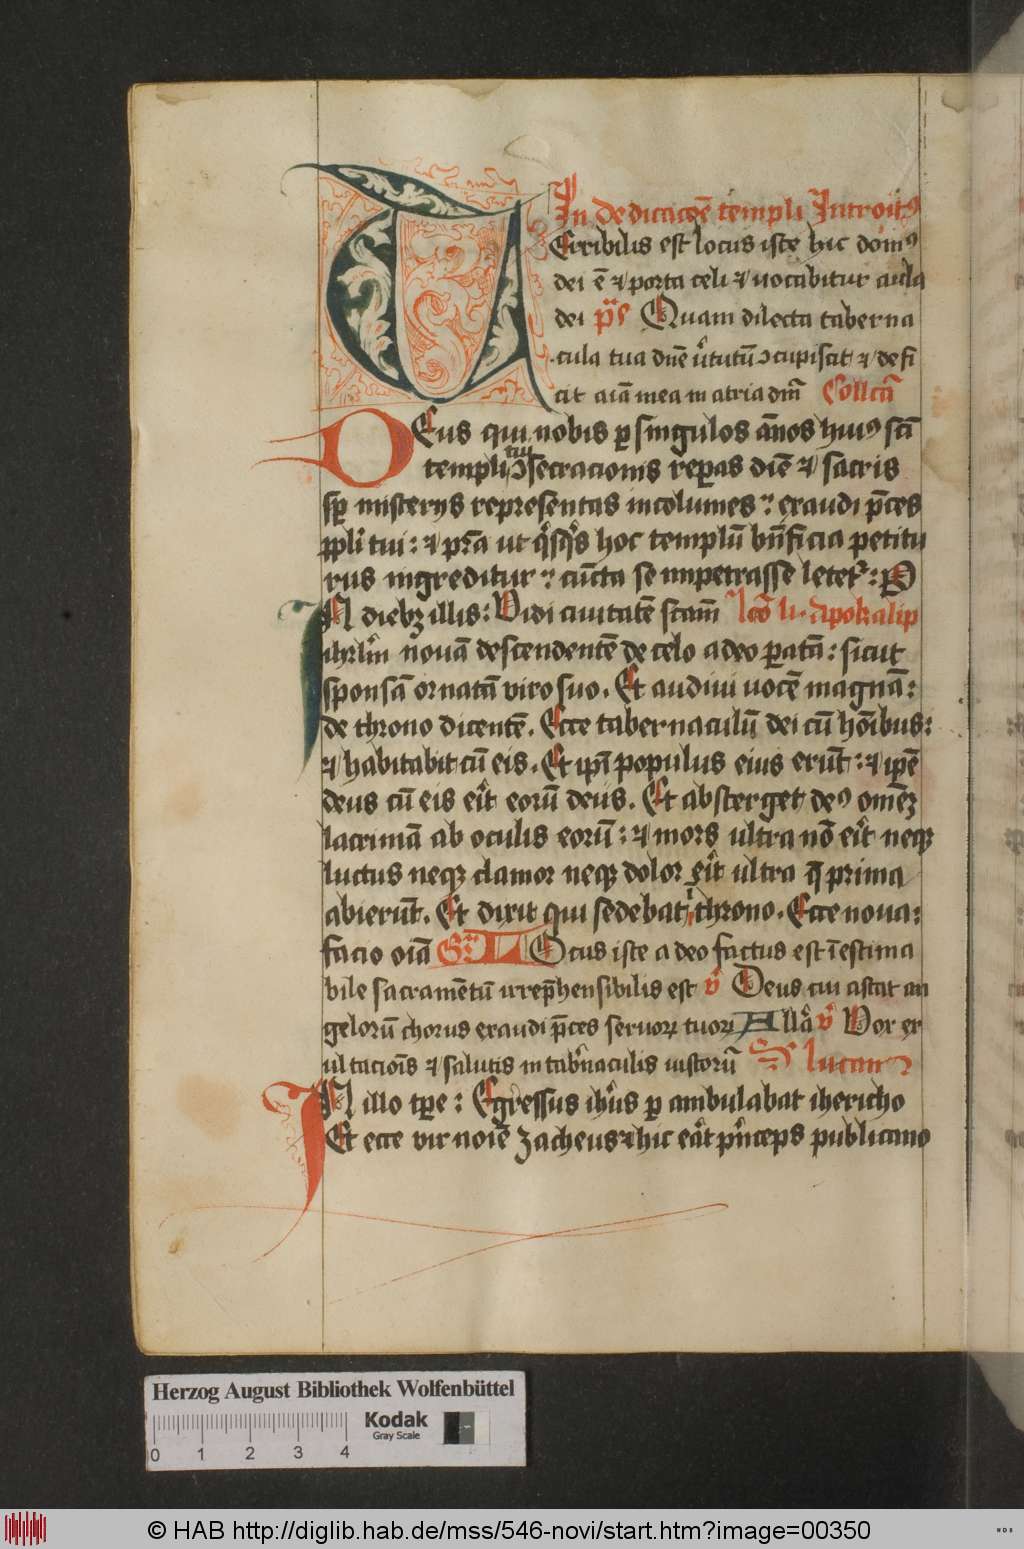 In dedicacōe templi Introitꝰ
TErribilis est locus iste hic domꝰ
dei ē ⁊ porta celi ⁊ uocabitur aula
dei ps Quam dilecta taberna
cula tua dn̄e v̓tutū ↄcupiscit ⁊ defi
cit aīa mea in atria dnī Collcā
DEus qui nobis ꝑ singulos ānos huiꝰ scī
templi tui ↄsecracionis reꝑas diē ⁊ sacris
sꝑ misterijs representas incolumes: exaudi p̄ces
ppli tui: ⁊ pr̄a ut qͥsqͥs hoc templū bn̄ficia petitu
rus ingreditur: cuncta se impetrasse letet᷑: P
IN diebꝫ illis: Vidi ciuitatē scām̄ Lcō li. Apokalip
ihrl̄m nouā descendentē de celo a deo ꝑatā: sicut
sponsā ornatā viro suo. Et audiui uocē magnā:
de throno dicentē. Ecce tabernaculū dei cū hōībus:
⁊ habitabit cū eis. Et ip̄i populus eius erūt: ⁊ ip̄e
deus cū eis erit eorū deus. Et absterget deꝰ omēꝫ
lacrimā ab oculis eorū: ⁊ mors ultra nō erit neqꝫ
luctus neqꝫ clamor neqꝫ dolor erit ultra q̄ prima
abierūt. Et dixit qui sedebat i throno. Ecce noua:
facio oīā Gr̄ LOcus iste a deo factus est īestima
bile sacramētū irrep̄hensibilis est v̓ Deus cui astat an
gelorū chorus exaudi p̄ces seruoꝝ tuoꝝ Allā v̓ Vox ex
ultacioīs ⁊ salutis in tab̓naculis iustorū Scdm lucam
IN illo tꝑe: Egressus ihūs ꝑambulabat ihericho
Et ecce vir noīe zacheus ⁊ hic erat pͥnceps publicano
Herzog August Bibliothek Wolfenbüttel
Kodak
Gray Scale
0 1 2 3 4
© HAB http://diglib.hab.de/mss/546-novi/start.htm?image=00350